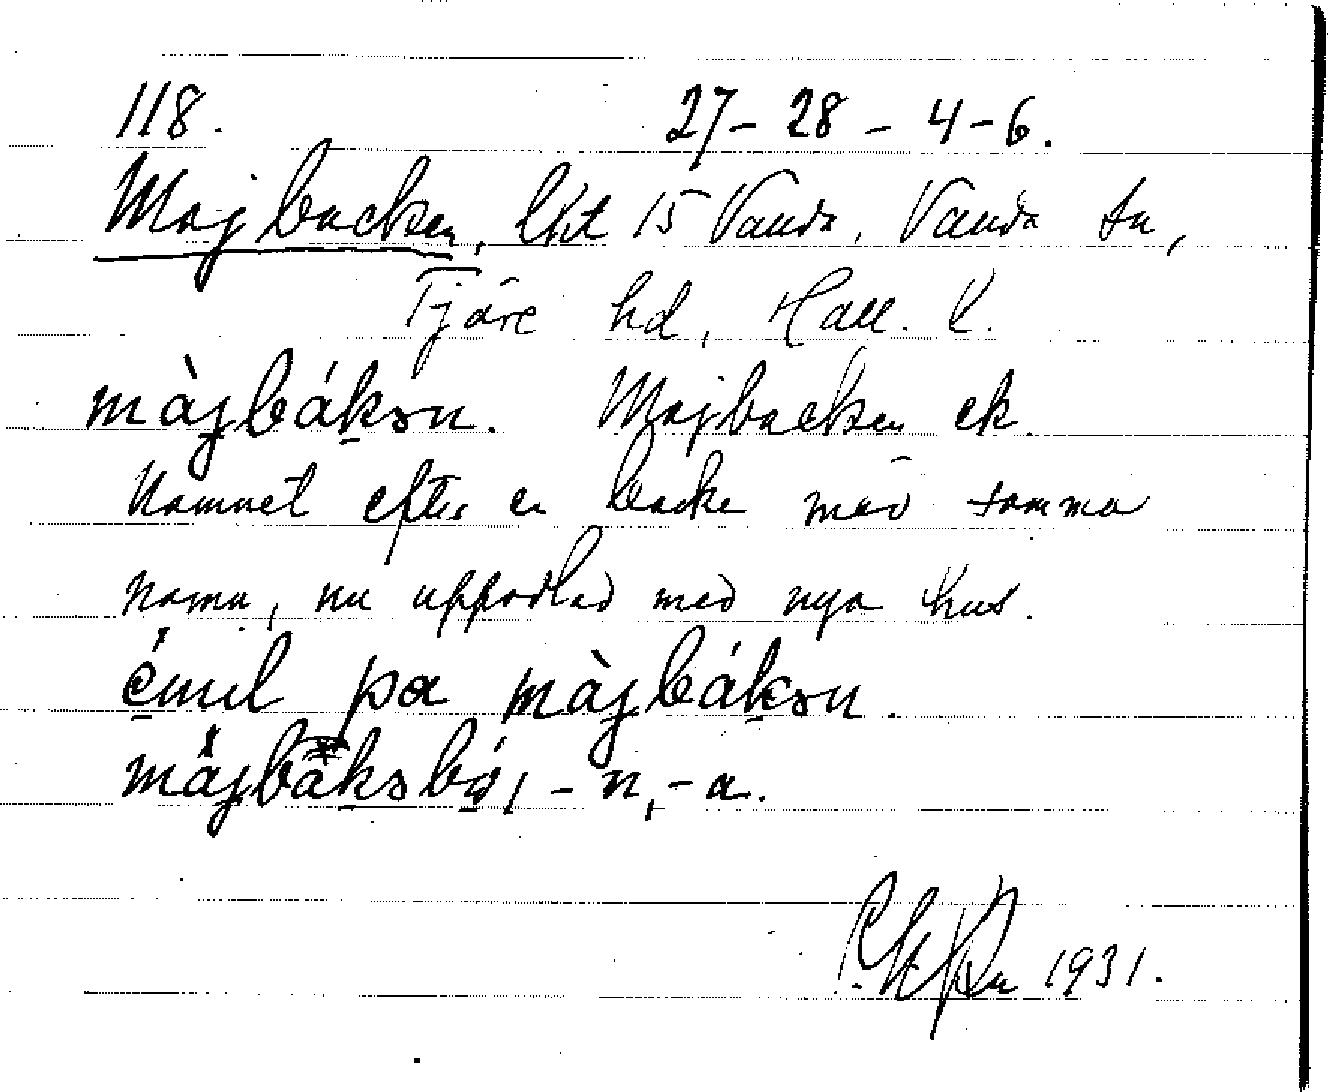 118. 27-28-4-6.
Majbacken, lht 15 Vanda, Vanda sn,
Fjäre hd, Hall. l.
màjbákən. Majbacken ek.
Namnet efter en backe med samma
namn, nu uppodlad med nya hus.
émil pa màjbákən.
májbàksbó, -n, -a.
1931.